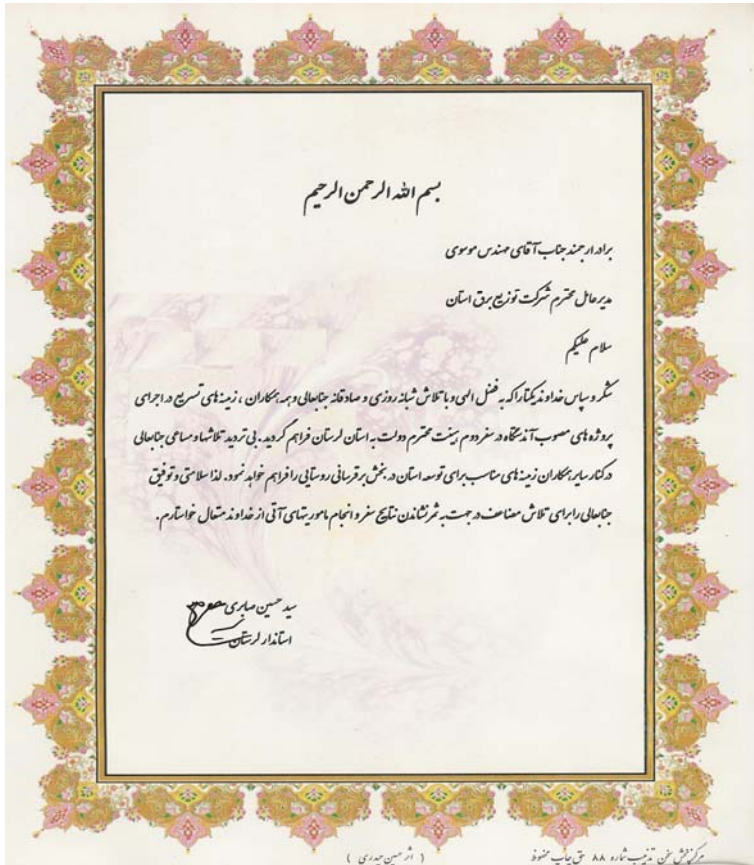 بسم الله الرحمن الرحیم
برادر ارجمند جناب آقای مهندس موسوی
مدیر عامل محترم شرکت توزیع برق استان
سلام علیکم
شکر و سپاس خداوند یکتا را که به فضل الهی و با تلاش شبانه روزی و صادقانه جنابعالی و همه همکاران ، زمینه های تسریع در اجرای
پروژه های مصوب آن دستگاه در سفر دوم هیئت محترم دولت به استان لرستان فراهم گردید. بی تردید تلاشها و مساعی جنابعالی
در کنار سایر همکاران زمینه های مناسب برای توسعه استان در بخش برقرسانی روستایی را فراهم خواهد نمود. لذا سلامتی و توفیق
جنابعالی را برای تلاش مضاعف در جهت به ثمر نشاندن نتایج سفر و انجام ماموریتهای آتی از خداوند متعال خواستارم.
سید حسین صابری
استاندار لرستان
مرکز پخش سخن تذهیب شماره ۸۸ حق چاپ محفوظ ( اثر حسین حیدری )